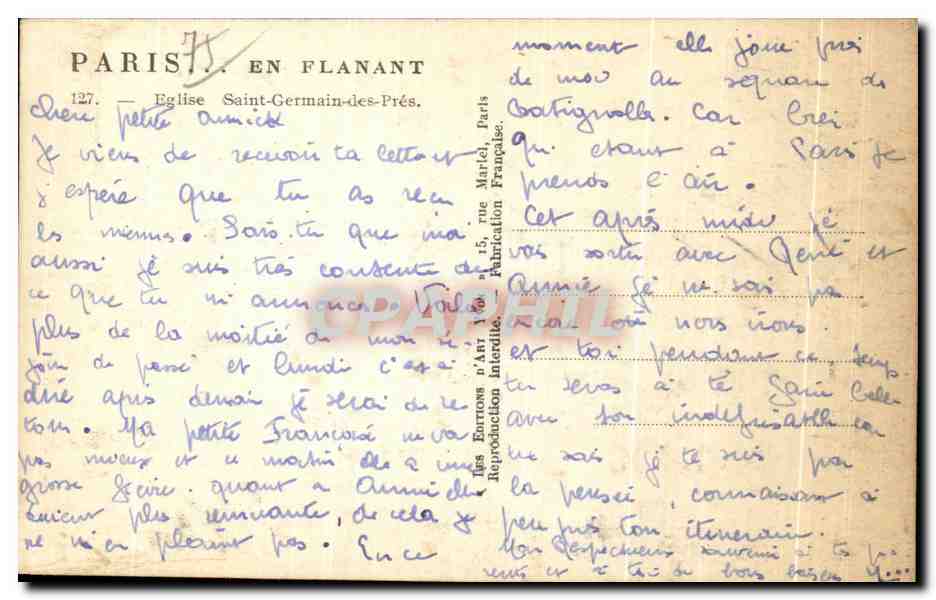 75
PARIS... EN FLANANT
127. — Eglise Saint-Germain-des-Prés.
chère petite
Je viens de recevoir ta lettre et
j espère que tu as reçu
les miennes. Sais-tu que moi
aussi je suis très contente de
ce que tu m annonces. Voilà
plus de la moitié de mon sé-
jour de passé et lundi c'est à
dire après demain je serai de re
tour. Ma petite Françoise ne va
pas mieux et ce matin elle a une
grosse fièvre. quant a Annie elle
devient plus remuante, de cela je
ne m'en plaint pas. En ce
LES EDITIONS D'ART YVON 15, rue Martel, Paris
Reproduction Interdite. Fabrication Française.
moment elle joue près
de moi au square de
Batignolles. Car bien
qu. etant à Paris je
prends l'air.
Cet après midi je
vais sortir avec René et
Annie je ne sais pas
encore où nous irons.
et toi pendant ce temps
tu seras à
avec son car
tu sais je te suis par
la pensée, connaissant à
peu près ton itinerair.
Mon Respectueux souvenir à tes pa
rents et à toi de bons baisers
CPAPHIL